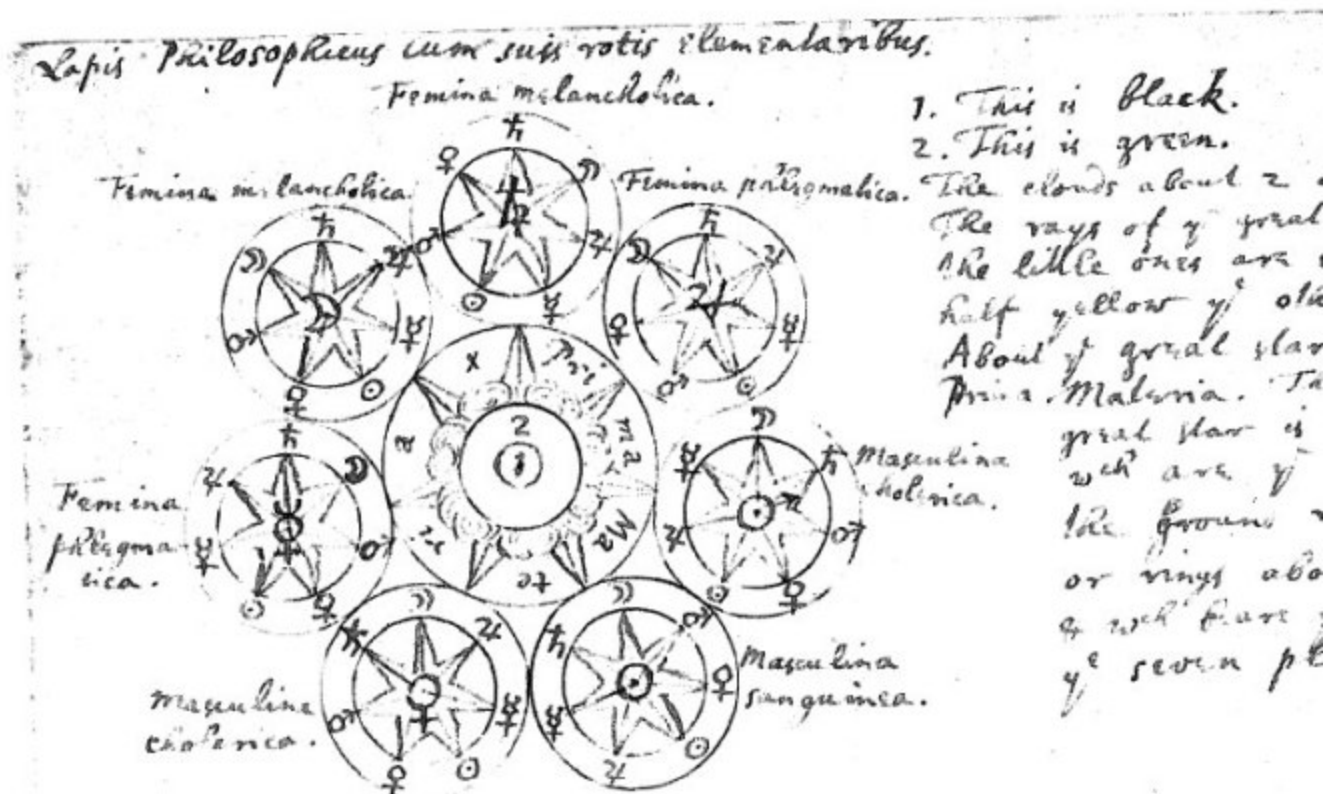 Lapis Philosophicus cum suis rotis elementaribus.
Femina melancholica.
Femina melancholica
Femina phlegmatica.
Masculina
cholerica.
Masculina
sanguinea.
Masculina
cholerica.
Femina
phlegma
tica.
Pri ma Ma te ri a x
2
1
1. This is black.
2. This is green.
The clouds about 2
The rays of yᵉ great
the little ones are
half yellow yᵉ
About yᵉ great star
Prima Materia.
great star is
wᶜʰ are yᵉ
the ground
or rings
& wᶜʰ bare
yᵉ seven